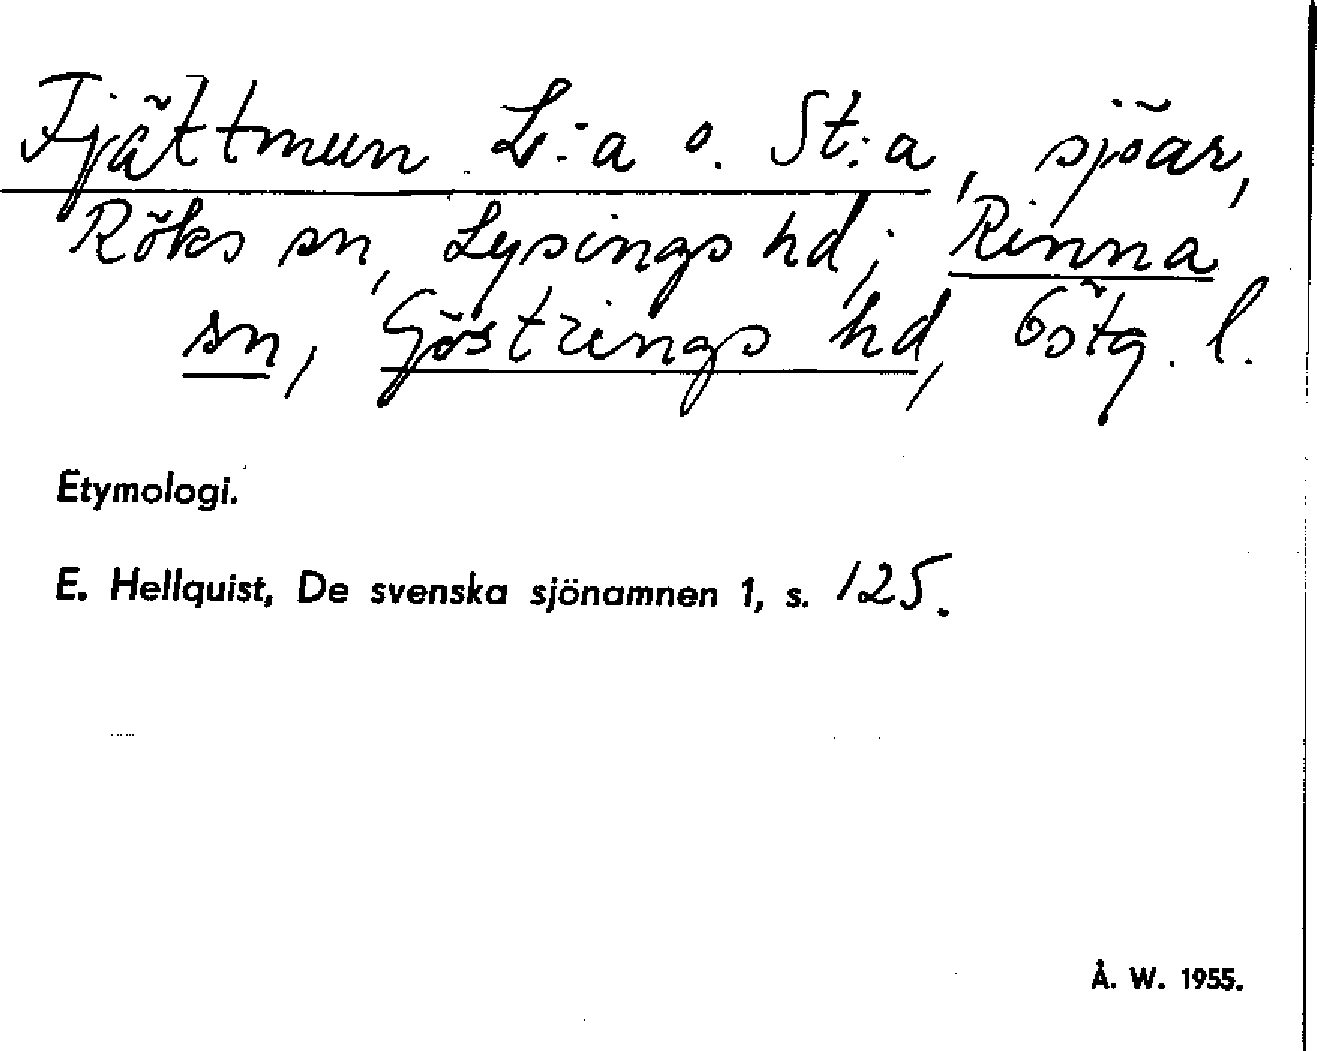 Fjättmun L:a o. St:a, sjöar,
Röks sn, Lysings hd; Rinna
sn, Göstrings hd, Östg. l.
Etymologi.
E. Hellquist, De svenska sjönamnen 1, s. 125.
Å. W. 1955.